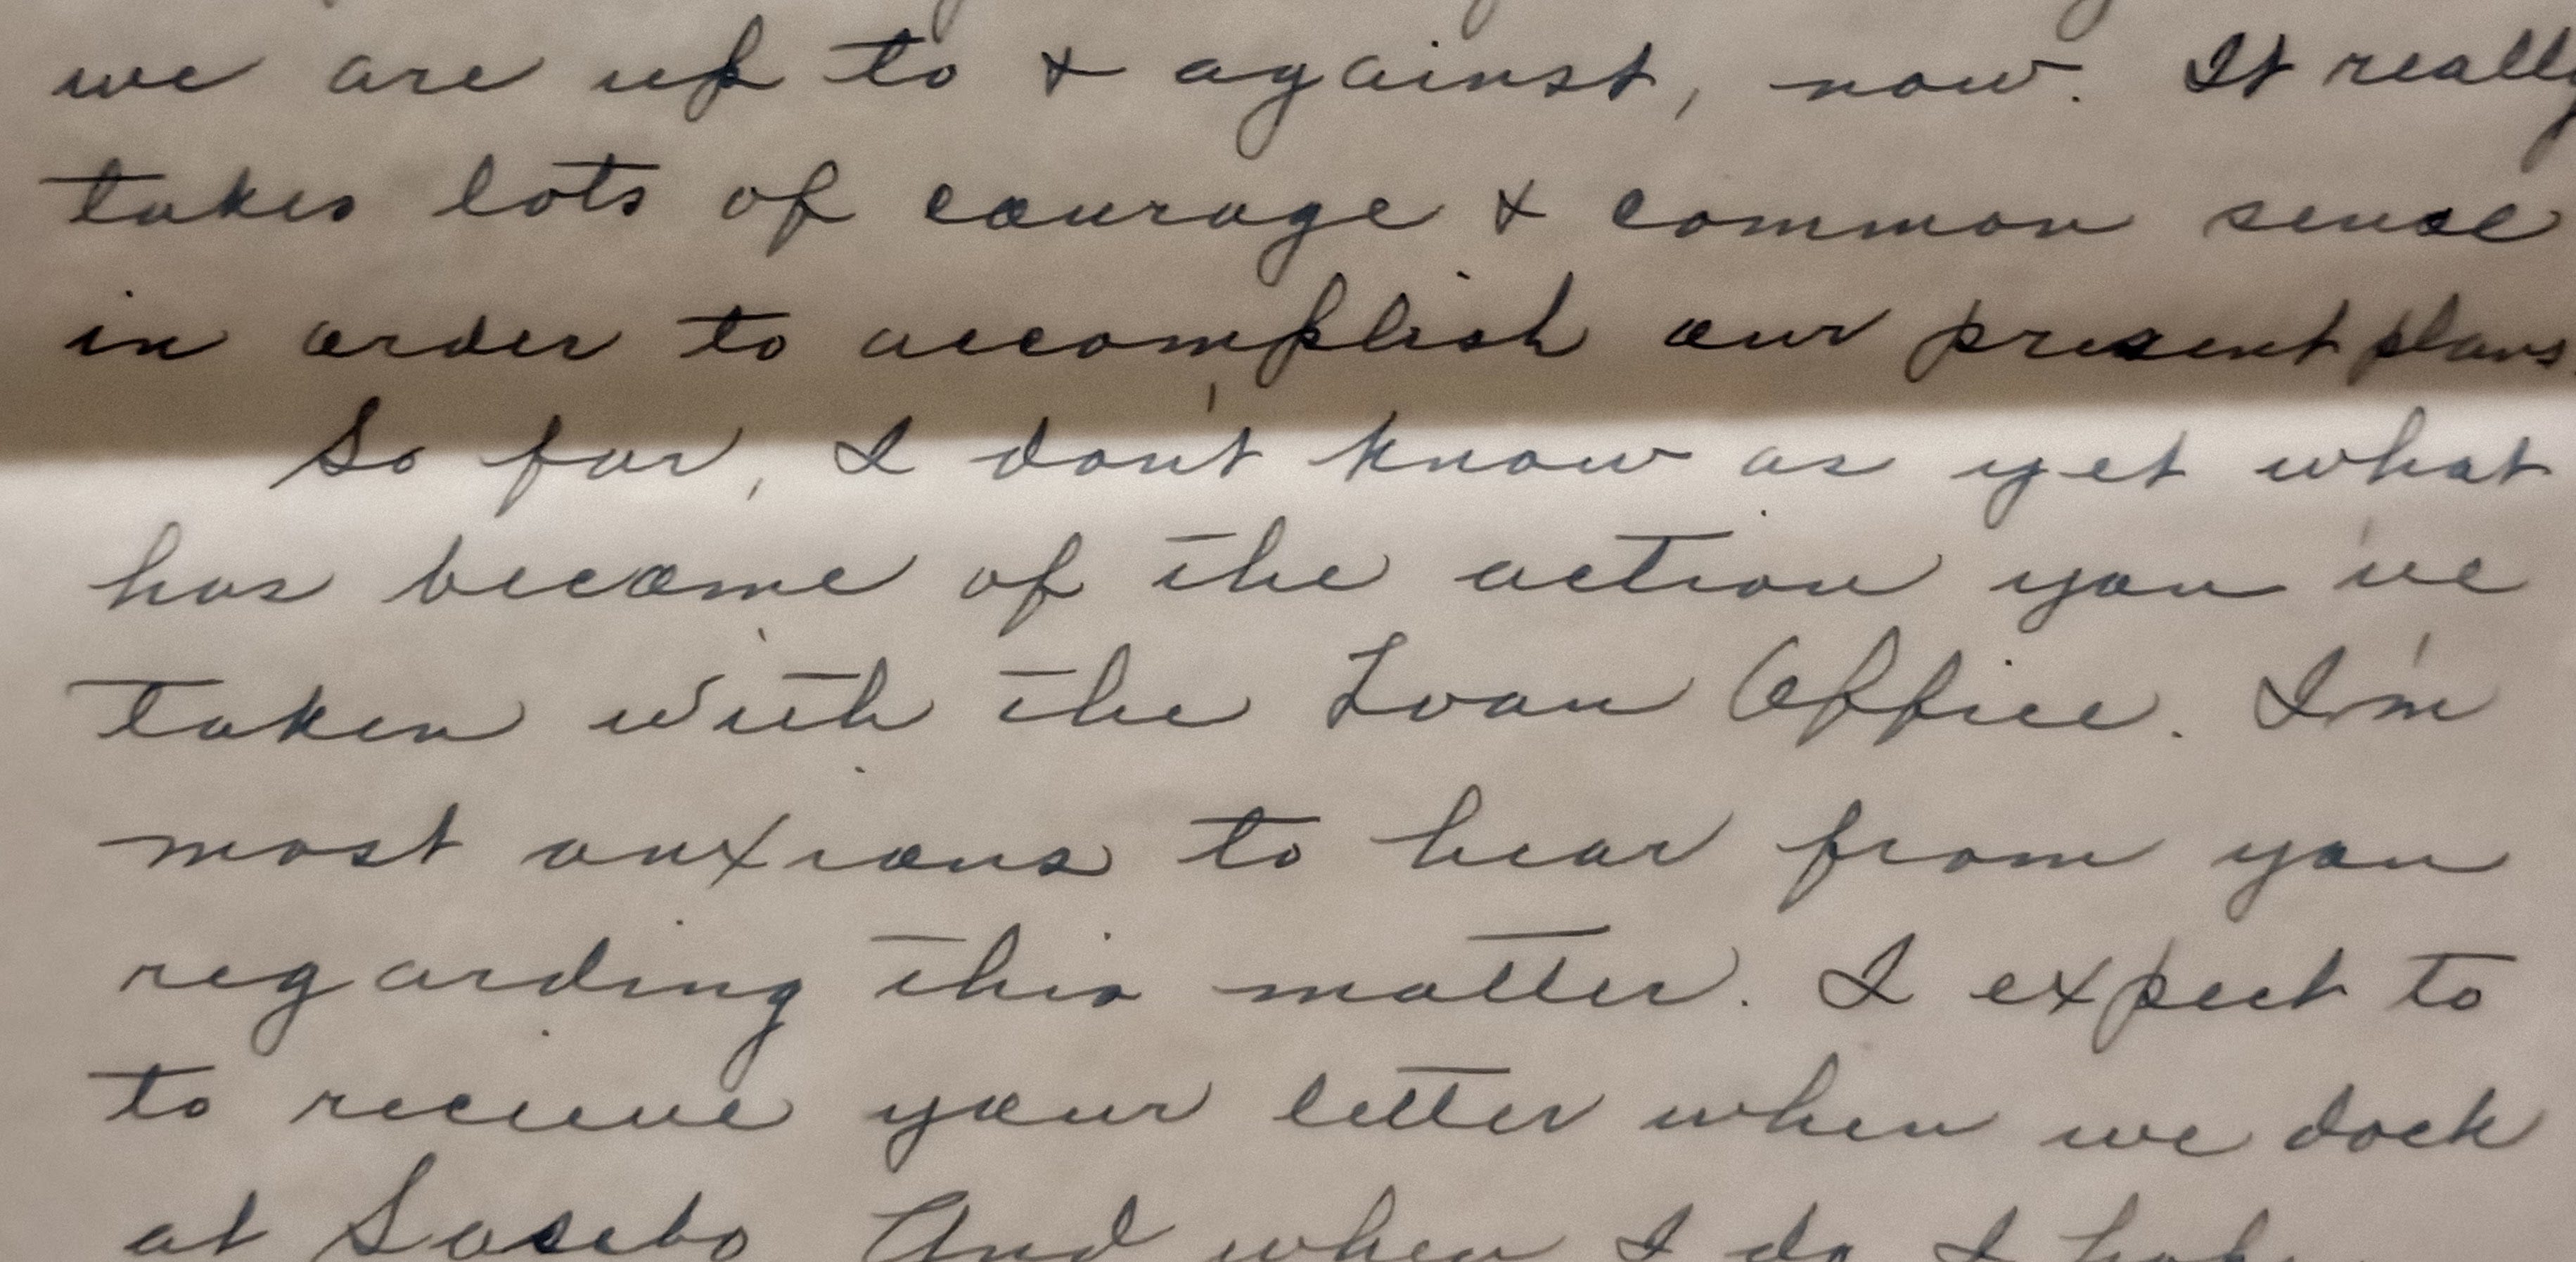 we are up to & against, now. It really
takes lots of courage & common sense
in order to accomplish our present plans.
So far, I don't know as yet what
has become of the action you've
taken with the Loan Office. I'm
most anxious to hear from you
regarding this matter. I expect to
to recieve your letter when we dock
at Sasebo And when I do I hope